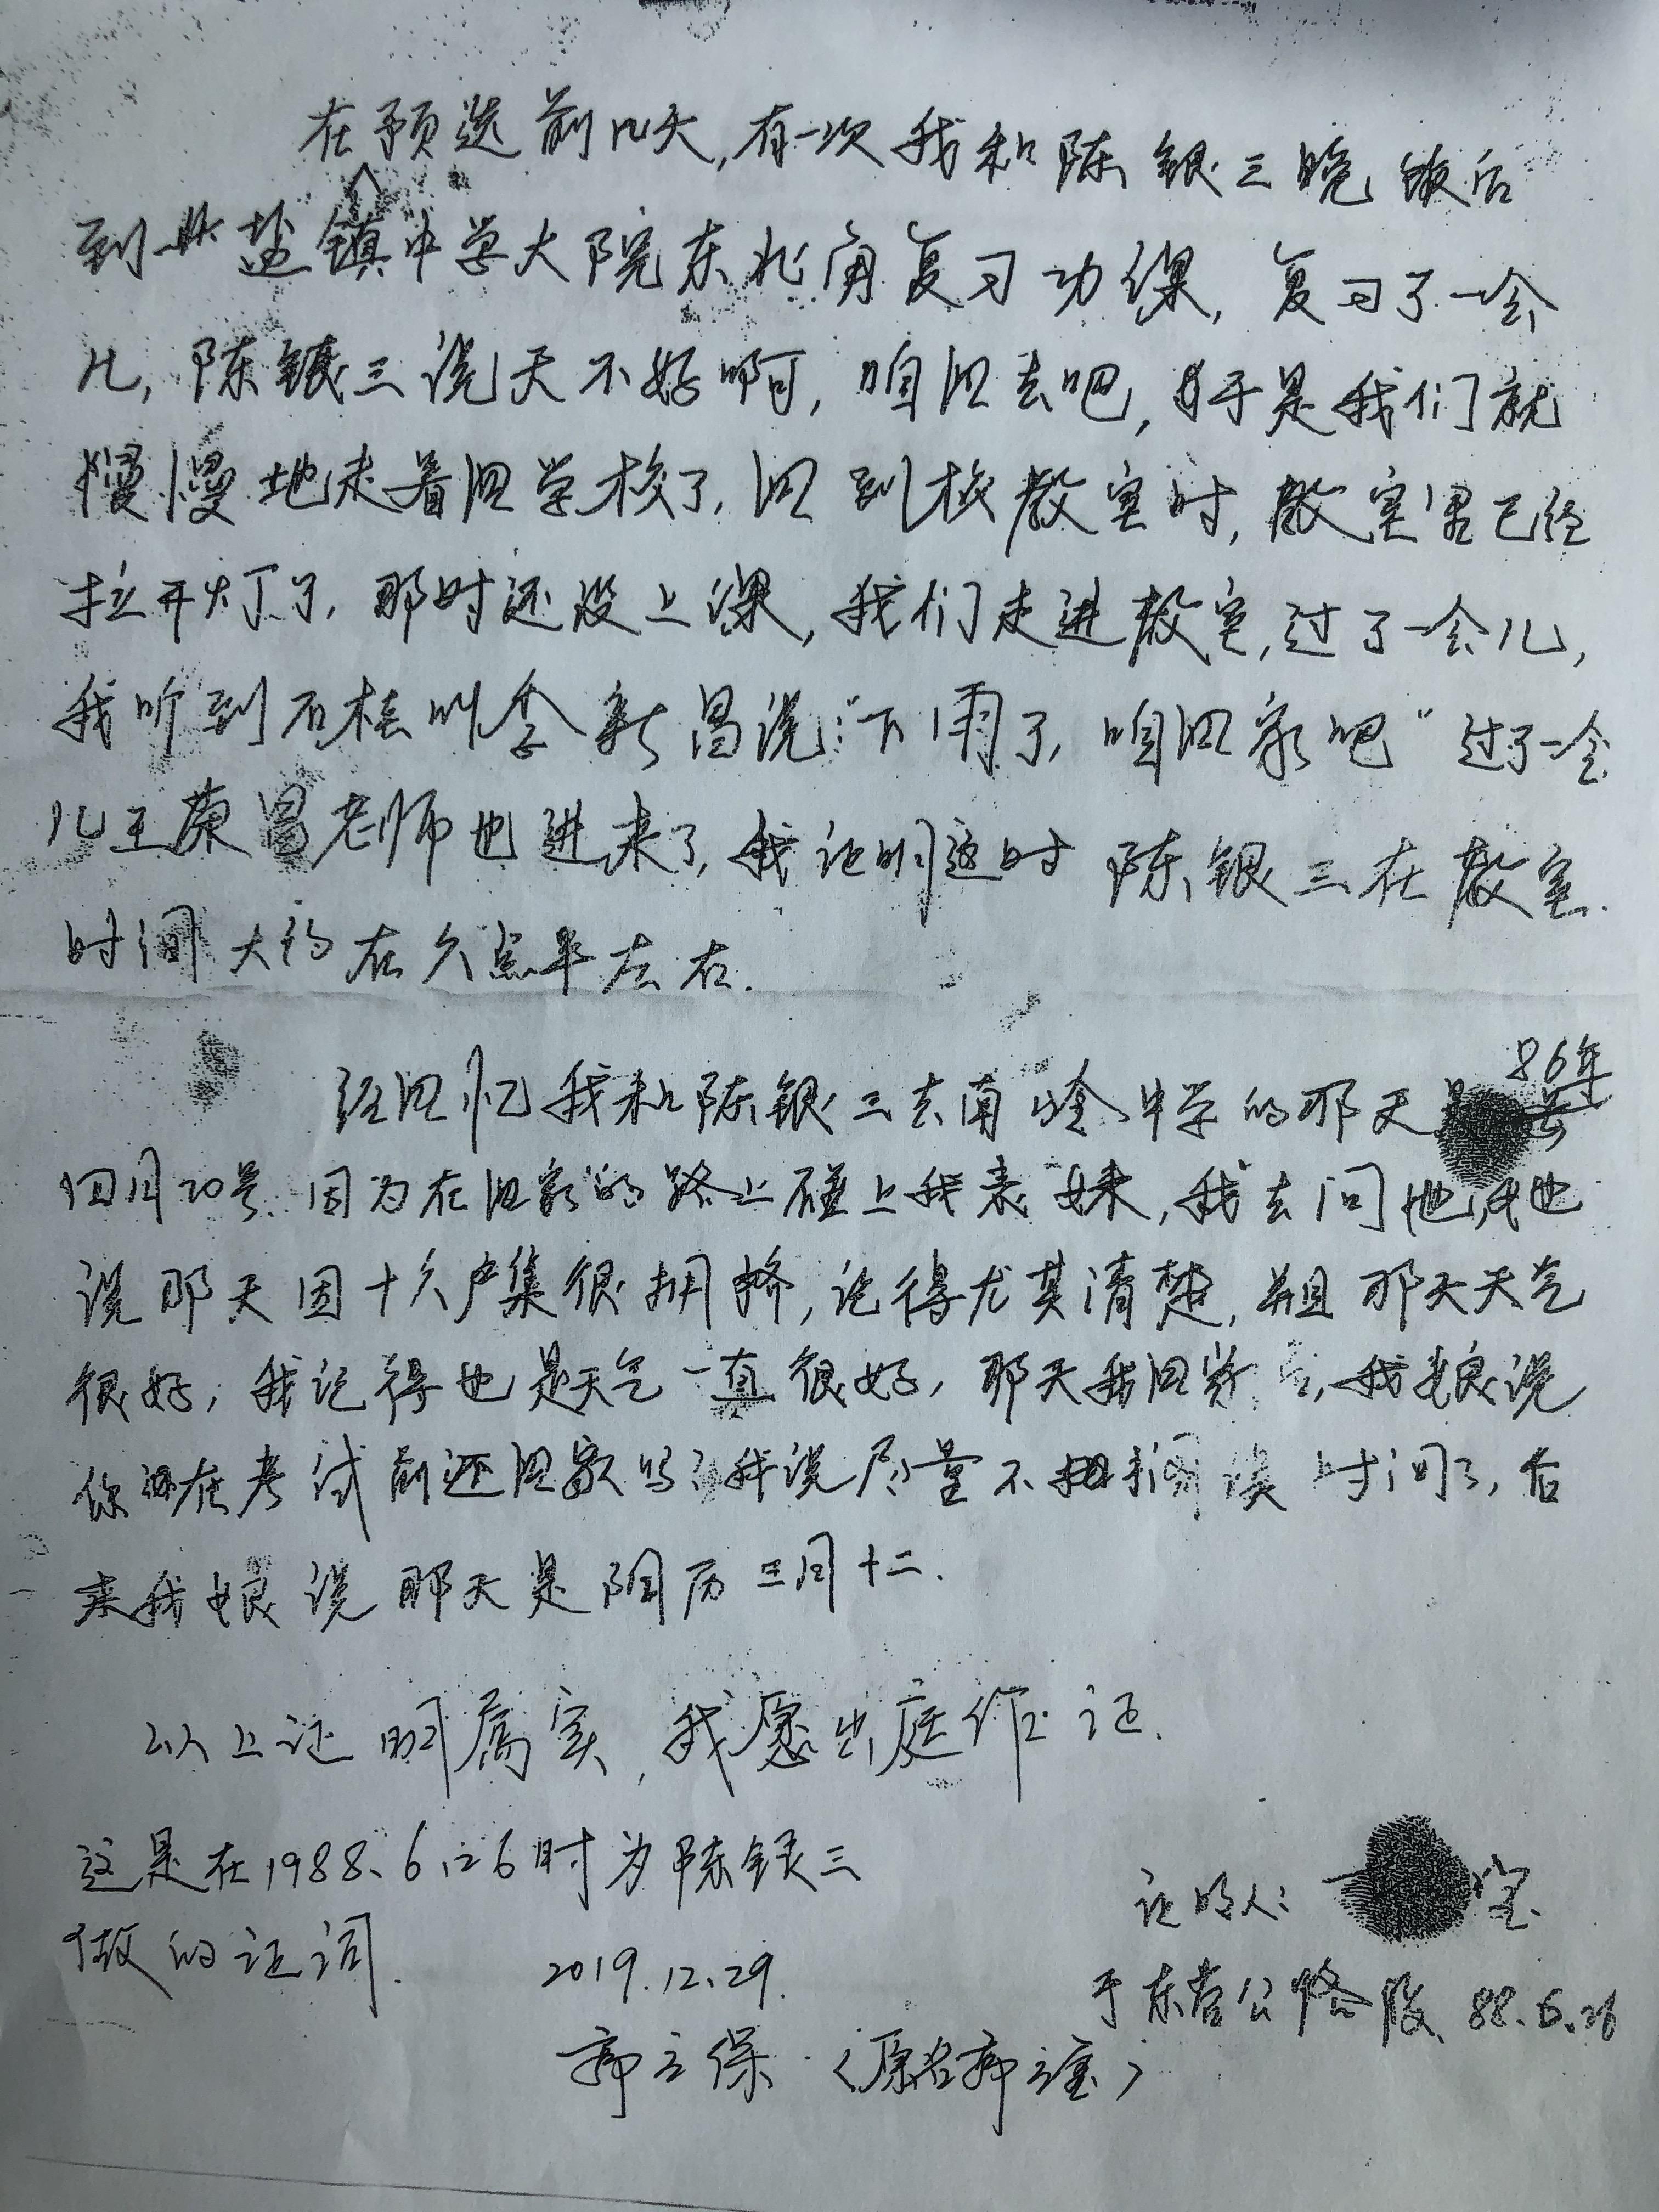 在预选前几天,有一次我和陈银三晚饭后
到盐镇中学大院东北角复习功课,复习了一会
儿,陈银三说天不好啊,咱回去吧,于是我们就
慢慢地走着回学校了,回到校教室时,教室里已经
拉开灯了,那时还没上课,我们走进教室,过了一会儿,
我听到石桂叫李新昌说:“下雨了,咱回家吧”过了一会
儿王荣昌老师也进来了,我证明这时陈银三在教室.
时间大约在久点半左右.
86年
经回忆我和陈银三去南中学的那天是
四月20号.因为在回家的路上碰上我表妹,我去问她,她
说那天因十六户集很拥挤,记得尤其清楚,并且那天天气
很好,我记得也是天气一直很好,那天我回家后,我娘说
你在考试前还回家吗?我说尽量不耽误时间了,后
来我娘说那天是阴历三月十二.
以上证明属实,我愿出庭作证.
这是在1988、6、26时为陈银三
做的证词.
证明人: 宝
2019.12.29.
于东营公路段、88.6.26
郭立保(原名郭立宝)